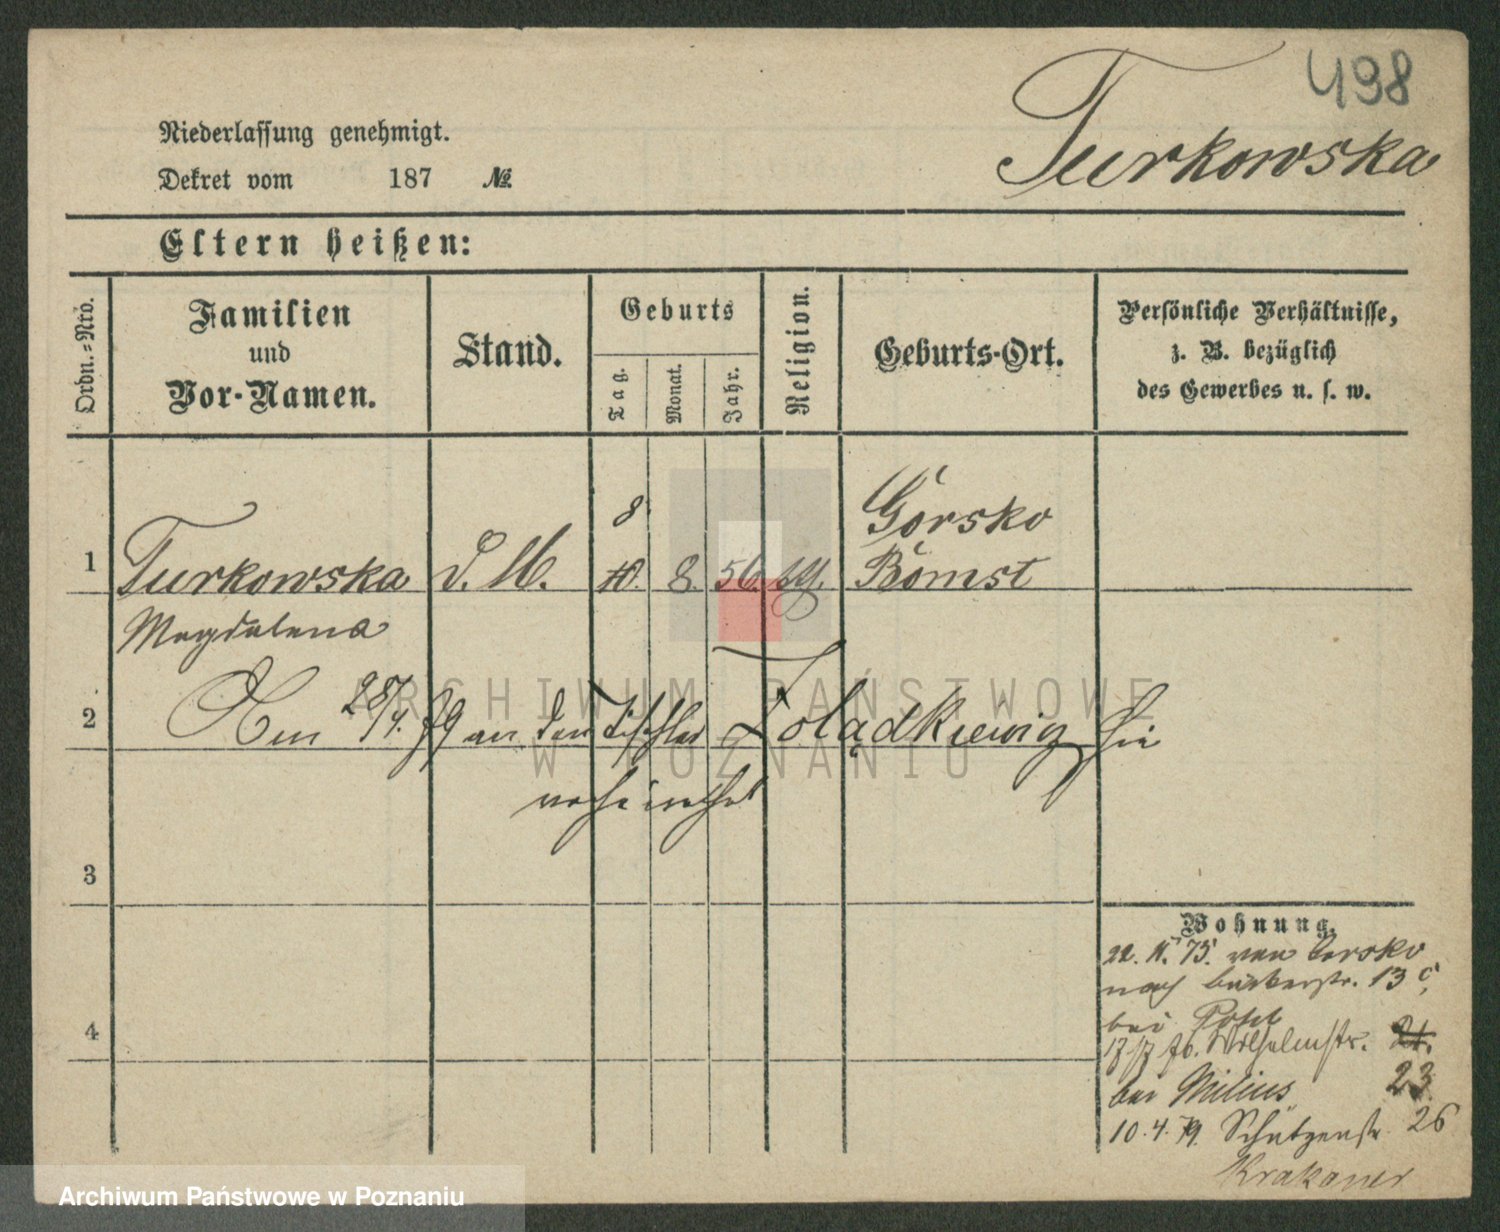 498
Turkowska
Niederlassung genehmigt.
Dekret vom 187 №
Eltern heißen:
Ordn.-Nro.
Familien und Vor-Namen.
Stand.
Geburts
Tag.
Monat.
Jahr.
Religion.
Geburts-Ort.
Persönliche Verhältnisse,
z. B. bezüglich
des Gewerbes u. s. w.
8
Górsko
1 Turkowska D. M. 10. 8. 56. kth. Bomst
Magdalena
2 Am 28/4. 79 an den Tischler Żolądkiewicz hie
verheirathet
3
4
Wohnung.
22. 11. 75. von Gorsko
nach 13 c,
bei
17/7 76. Wilhelmstr. 24.
bei Milius 23
10. 4. 79. Schützenstr 26
Krakauer
ARCHIWUM PAŃSTWOWE
W POZNANIU
Archiwum Państwowe w Poznaniu